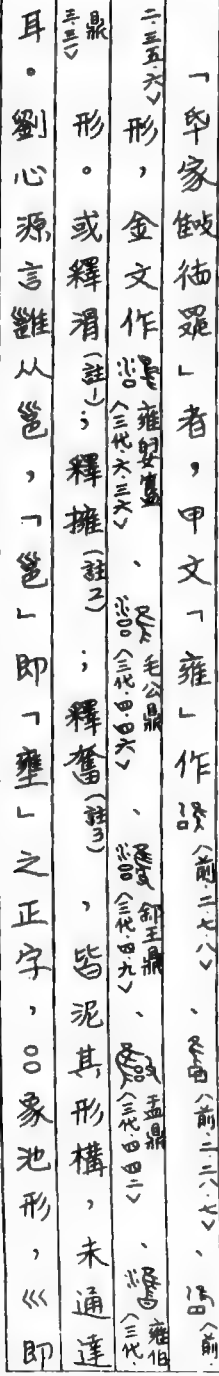 「氒家雝德」者，甲文「雍」作〈前.二.七.八〉、〈前.二.二八.七〉、〈前
二.三五.六〉形，金文作雍娶簋〈三代.六.三六〉、毛公鼎〈三代.四.四六〉、鄒王鼎〈三代.四.九〉、盂鼎〈三代.四.四二〉、雍伯〈三代.
鼎三.三一〉形。或釋渭(註1)；釋擁(註2)；釋奮(註3)，皆泥其形構，未通達
耳。劉心源言雝从邕，「邕」即「壅」之正字，吕象池形，巛即